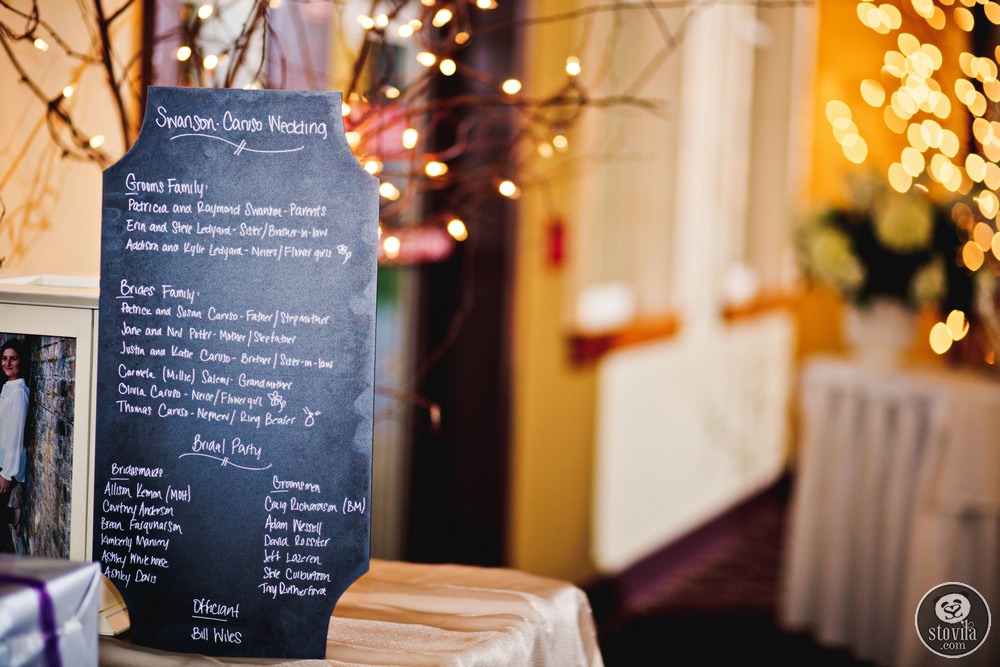 Swanson-Caruso Wedding
Grooms Family:
Patricia and Raymond Swanson-Parents
Erin and Steve Ledyard-Sister/Brother-in-law
Addison and Kylie Ledyard-Neices/Flower girls
Brides Family:
Patrick and Susan Caruso-Father/Stepmother
Jane and Neil Potter-Mother/Stepfather
Justin and Katie Caruso-Brother/Sister-in-law
Carmela (Millie) Salemi-Grandmother
Olivia Caruso-Neice/Flower girl
Thomas Caruso-Nephew/Ring Bearer
Bridal Party
Bridesmaids
Allison Kemon (MOH)
Courtney Anderson
Brean Farquharson
Kimberly
Ashley Whitehouse
Ashley Davis
Groomsmen
Craig Richardson (BM)
Adam Wessell
David Rossiter
Jeff Lazeren
Culbertson
Troy Rutherford
Officiant
Bill Wiles
stovila
.com